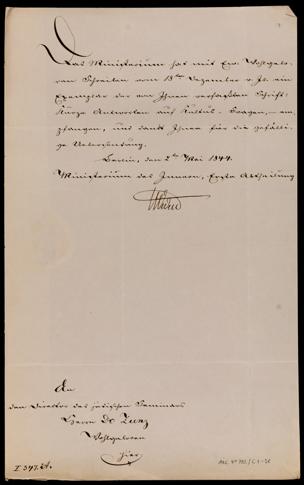 Das Ministerium hat mit Ew. Wohlgebo-
ren Schreiben vom 18ten Dezember v. Js. ein
Exemplar der von Ihnen verfaßten Schrift:
Kurze Antworten auf Kultus-Fragen, – em-
pfangen, und dankt Ihnen für die gefälli-
ge Uebersendung.
Berlin, den 2ten Mai 1844.
Ministerium des Innern, Erste Abtheilung
An
den Director des jüdischen Seminars
Herrn Dr Zunz
Wohlgeboren
hier
I 347. A.
ARC. 4° 792/C 1-